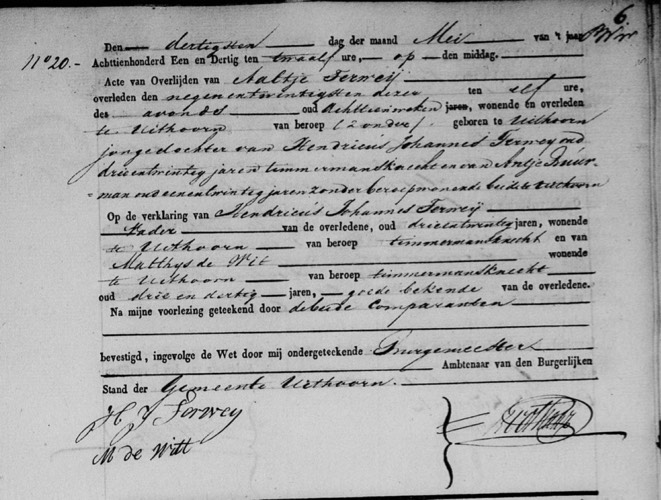 6.
N° 20.-
Den dertigsten dag der maand Mei van 't jaar
Achttienhonderd Een en Dertig ten twaalf ure, op den middag.
Acte van Overlijden van Aaltje Ferweij
overleden den negenentwintigsten dezer ten elf ure,
des avonds oud Achttien weken jaren, wonende en overleden
te Uithoorn van beroep (zonder) geboren te Uithoorn
jonge dochter van Hendricus Johannes Ferweij oud
drieentwintig jaren timmermansknecht en van Antje Buur-
man oud eenentwintig jaren zonder beroep wonende beide te Uithoorn
Op de verklaring van Hendricus Johannes Ferweij
Vader van de overledene, oud drieentwintig jaren, wonende
te Uithoorn van beroep timmermansknecht en van
Matthys de Wit wonende
te Uithoorn van beroep timmermansknecht
oud drie en dertig jaren, goede bekende van de overledene.
Na mijne voorlezing geteekend door de beide Comparanten
bevestigd, ingevolge de Wet door mij ondergeteekende Burgemeester
Ambtenaar van den Burgerlijken
Stand der Gemeente Uithoorn.
H J Ferweij
M de Witt